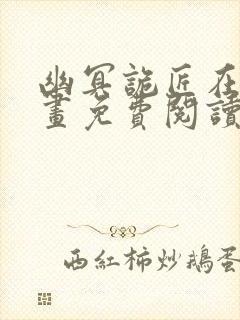 幽冥詭匠在
畫免費閱讀
西紅柿炒鵝蛋